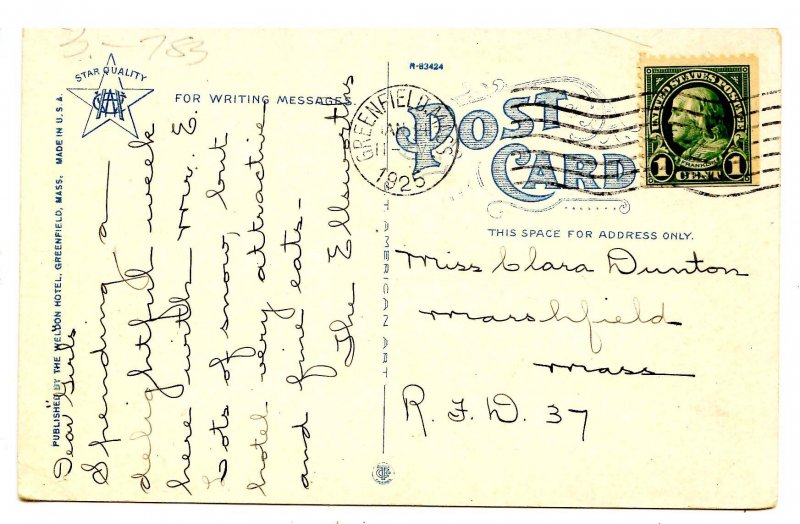 3 - 783
STAR QUALITY
R-83424
FOR WRITING MESSAGES
POST
CARD
GREENFIELD, MASS.
JAN
11-
1925
UNITED STATES POSTAGE
FRANKLIN
1 CENT 1
THIS SPACE FOR ADDRESS ONLY.
PUBLISHED BY THE WELDON HOTEL, GREENFIELD, MASS. MADE IN U.S.A.
AMERICAN ART
Dear Girls
Spending a
delightful week
here with Mr. E.
Lots of snow, but
hotel very attractive
and fine eats-
The Ellsworths
Miss Clara Dunton
Marshfield
Mass
R. F. D. 37